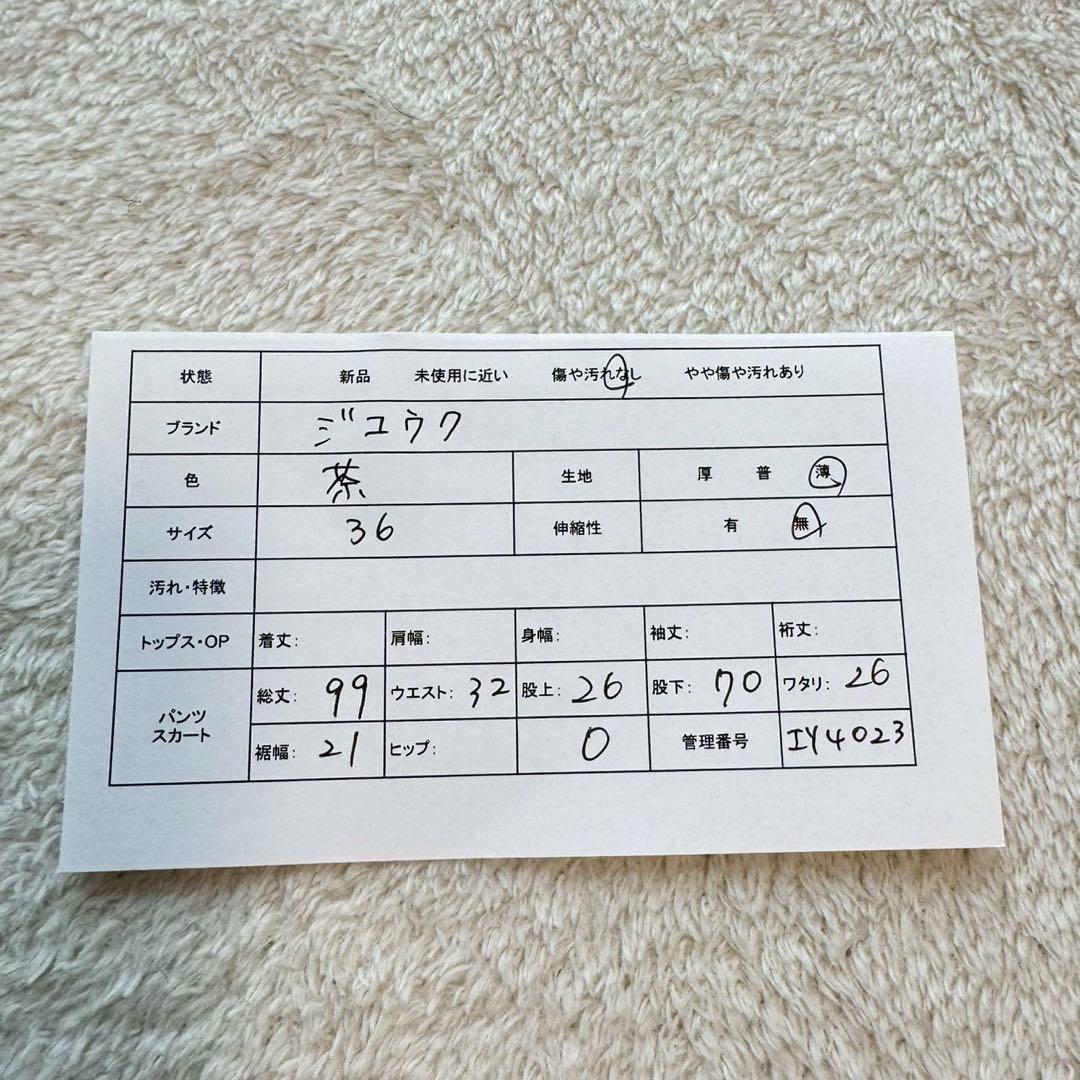 状態 新品 未使用に近い 傷や汚れなし やや傷や汚れあり
ブランド ジユウク
色 茶 生地 厚 普 薄
サイズ 36 伸縮性 有 無
汚れ・特徴
トップス・OP 着丈: 肩幅: 身幅: 袖丈: 裄丈:
パンツ スカート 総丈: 99 ウエスト: 32 股上: 26 股下: 70 ワタリ: 26
裾幅: 21 ヒップ: 0 管理番号 IY4023